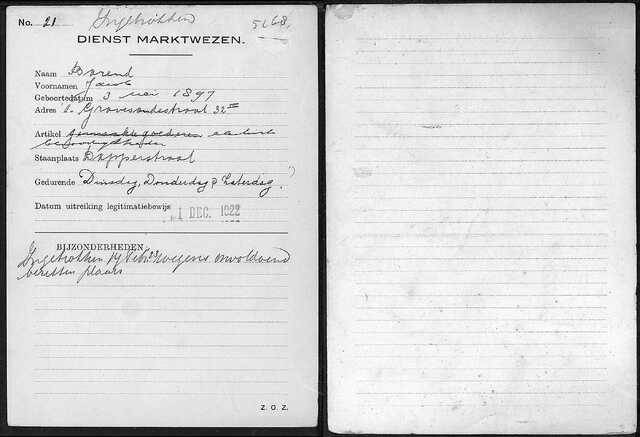 No. 21 Ingetrokken 5168
DIENST MARKTWEZEN.
Naam Barend
Voornamen Jacob
Geboortedatum 3 mei 1897
Adres 's Gravesandestraat 32 III
Artikel gemaakte goederen
Staanplaats Dapperstraat
Gedurende Dinsdag, Donderdag & Zaterdag.
Datum uitreiking legitimatiebewijs 1 DEC. 1922
BIJZONDERHEDEN
Ingetrokken 14 Feb. 23 wegens onvoldoend
bezetten plaats
Z. O. Z.